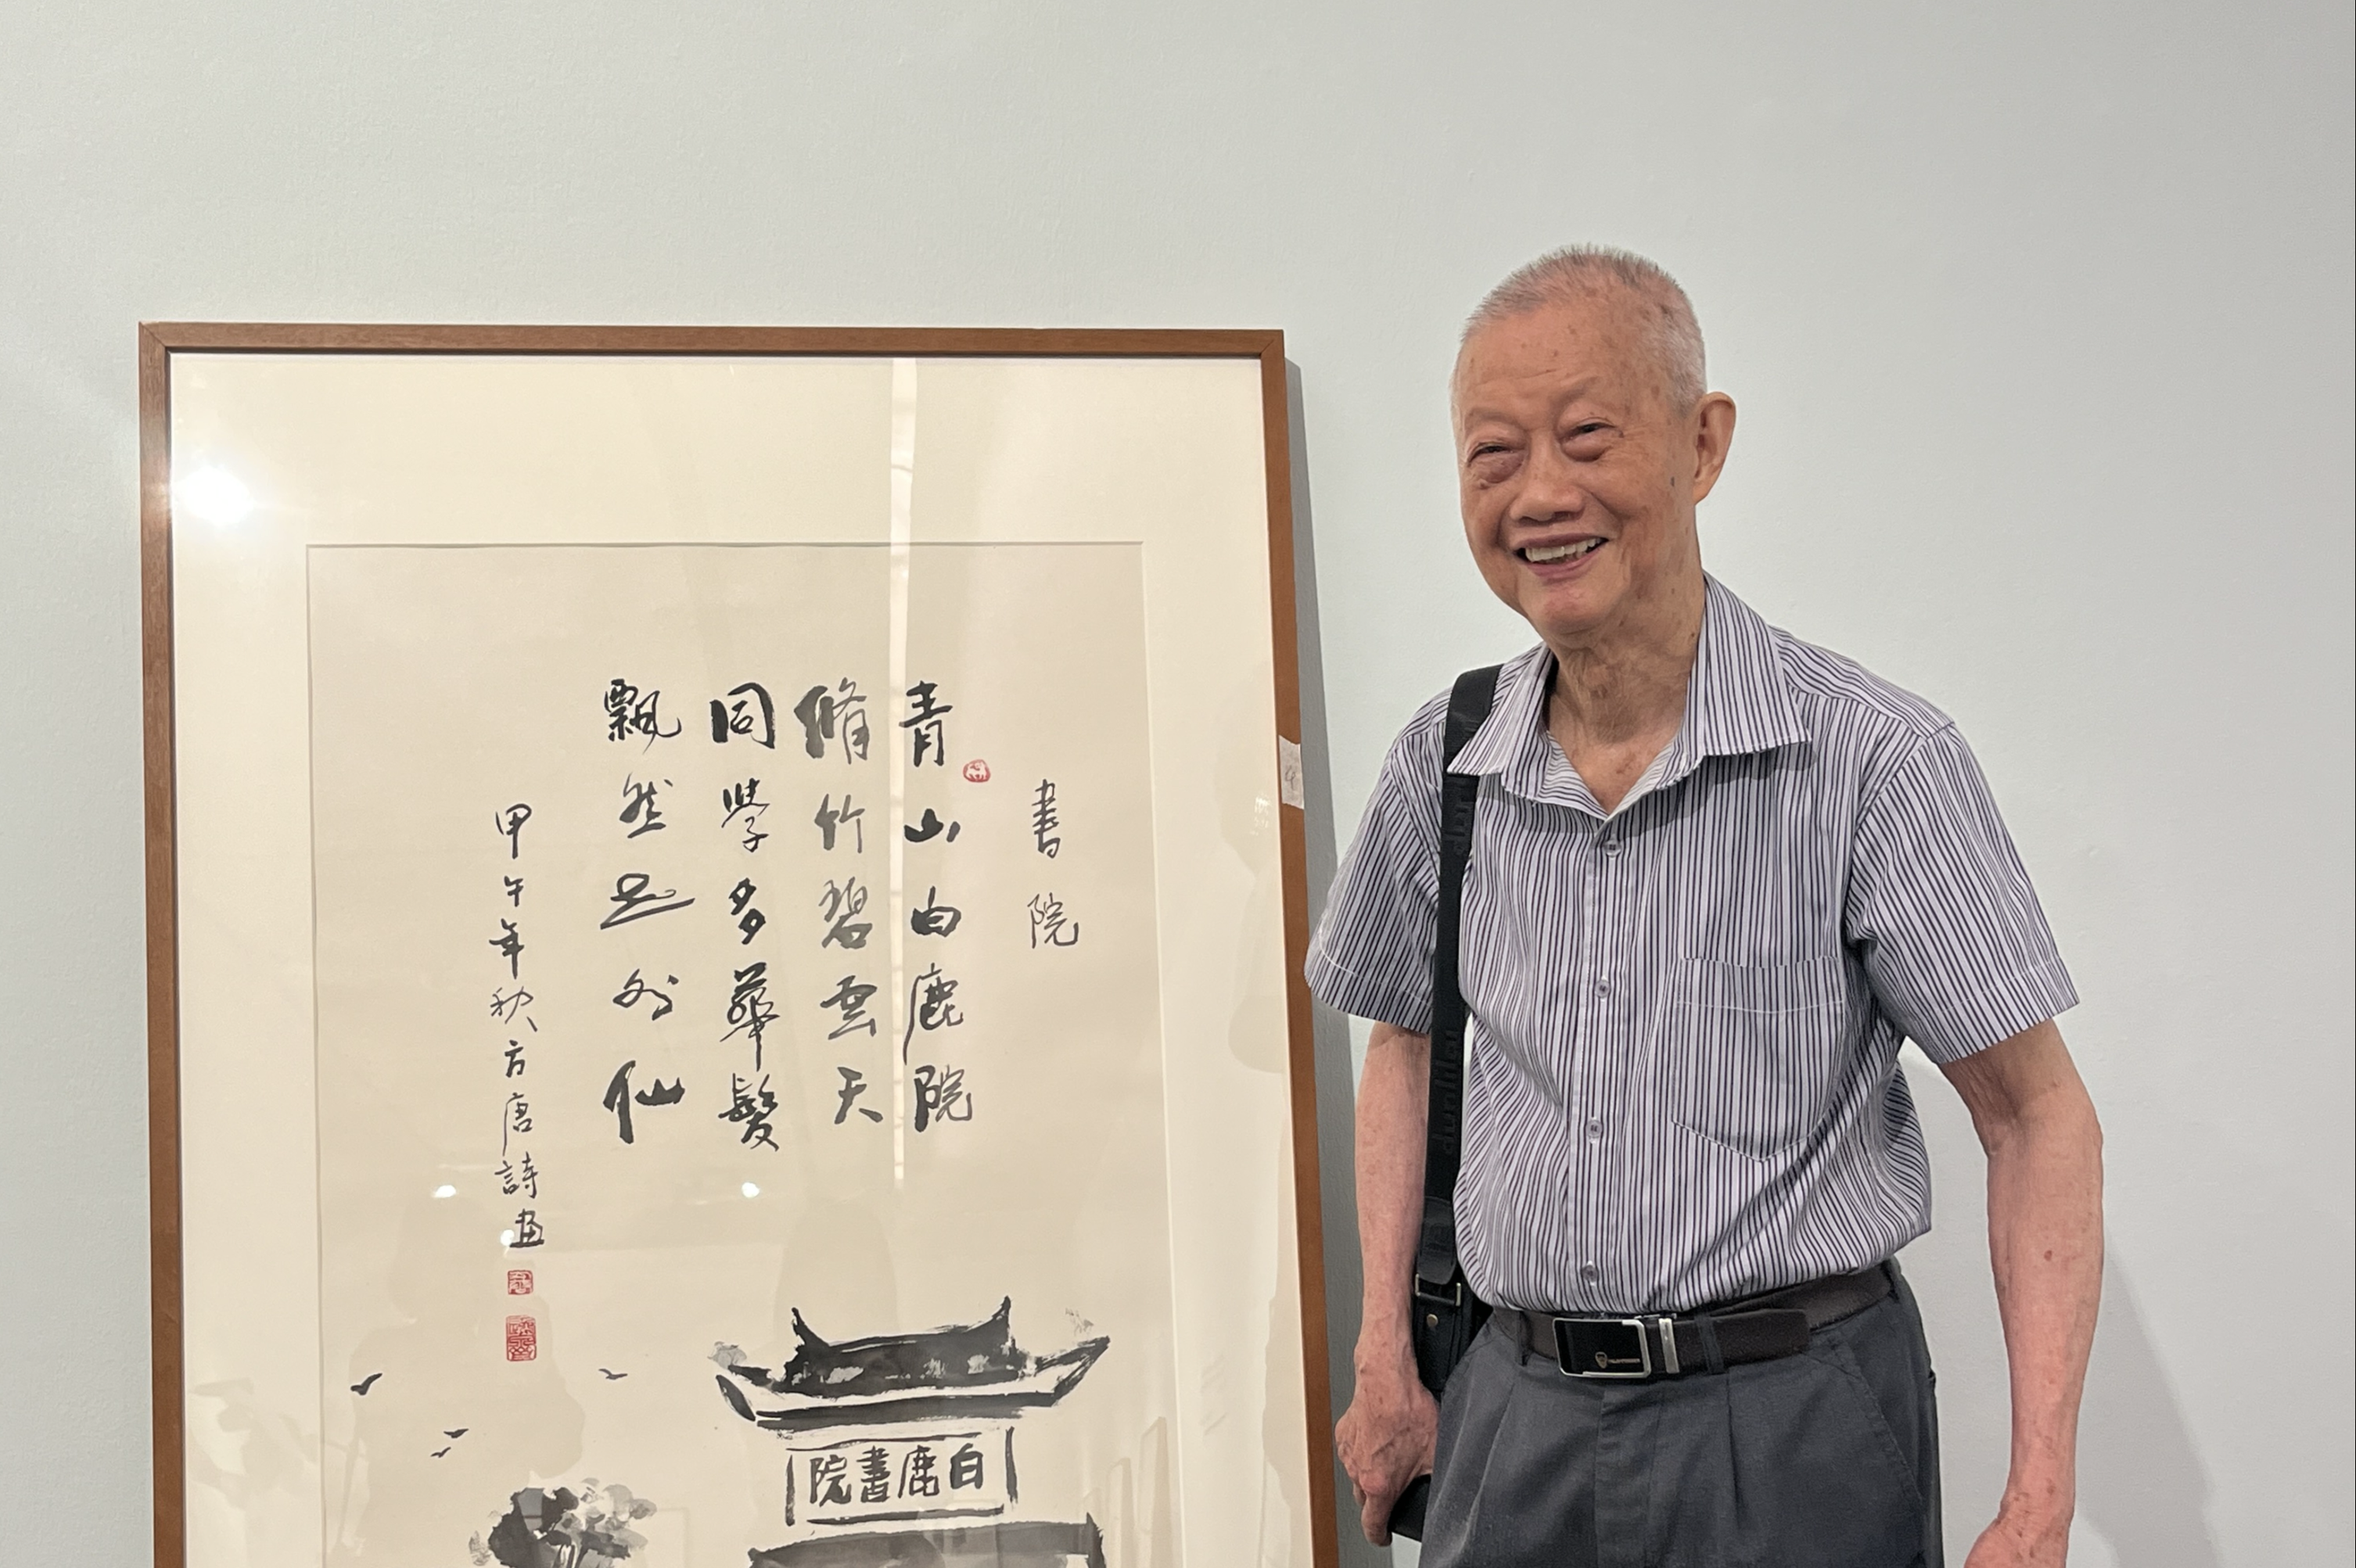 書院
青山白鹿院
脩竹碧雲天
同學多華髮
飄然世外仙
甲午年秋方唐詩畫
白鹿書院
dunhill